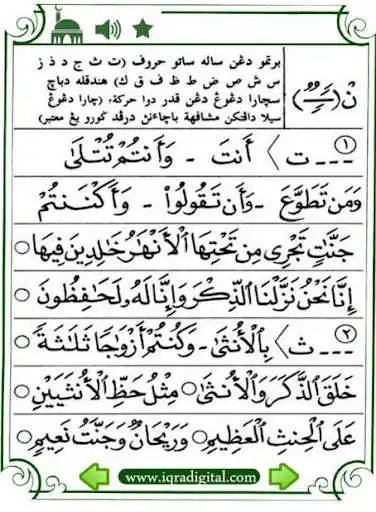 برتمو دڠن ساله ساتو حروف (ت ث ج د ذ ز
س ش ص ض ط ظ ف ق ك) هندقله دباچ
سچارا دڠوڠ دڠن قدر دوا حركة، (چارا دڠوڠ
سيلا دالتكن مشافهة باچاءن درڤد ݢورو يڠ معتبر)
نْ (ـًـٍـٌ)
١ --- ت ⟩ أَنتَ - وَأَنتُمْ تُتْلَىٰ
وَمَن تَطَوَّعَ - وَأَن تَقُولُوا۟ - وَأَكْنَنتُمْ
جَنَّٰتٍ تَجْرِى مِن تَحْتِهَا ٱلْأَنْهَٰرُ خَٰلِدِينَ فِيهَا ○
إِنَّا نَحْنُ نَزَّلْنَا ٱلذِّكْرَ وَإِنَّا لَهُۥ لَحَٰفِظُونَ ○
٢ --- ث ⟩ بِٱلْأُنثَىٰ - وَكُنتُمْ أَزْوَٰجًا ثَلَٰثَةً
خَلَقَ ٱلذَّكَرَ وَٱلْأُنثَىٰ ○ مِثْلُ حَظِّ ٱلْأُنثَيَيْنِ ○
عَلَى ٱلْحِنثِ ٱلْعَظِيمِ ○ وَرَيْحَانٌ وَجَنَّتُ نَعِيمٍ ○
www.iqradigital.com